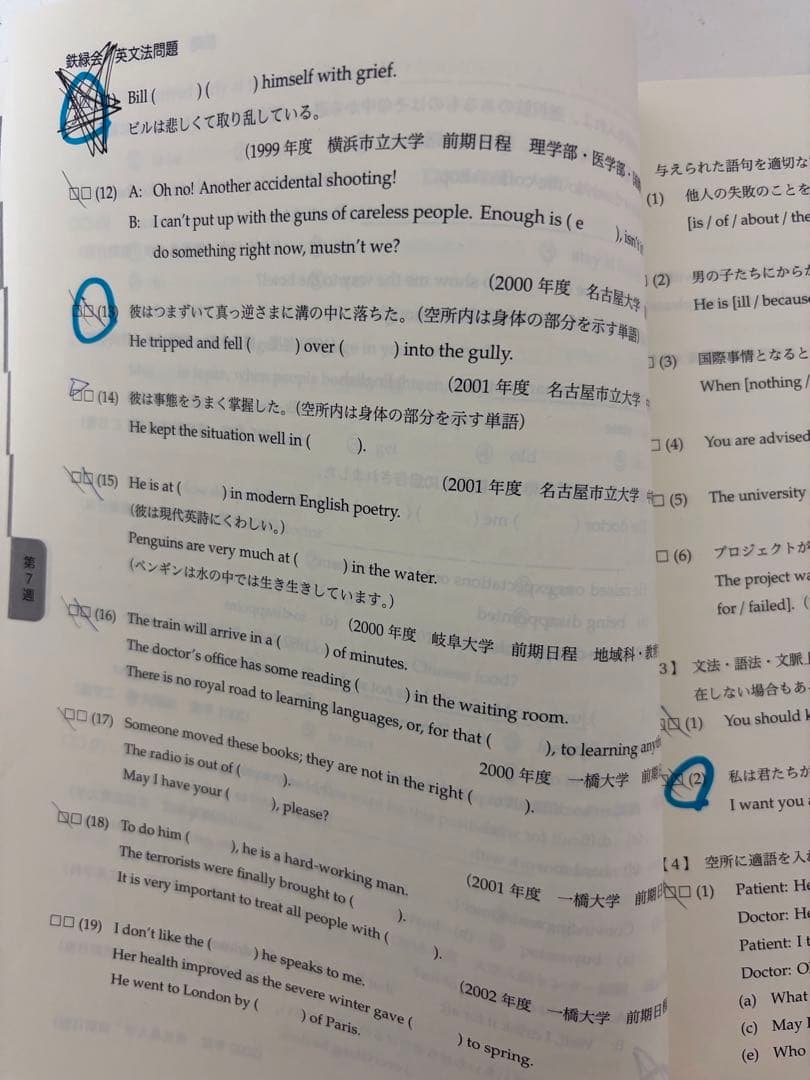 鉄緑会 英文法問題
Bill (　　) (　　) himself with grief.
ビルは悲しくて取り乱している。
(1999年度 横浜市立大学 前期日程 理学部・医学部・
□□(12) A: Oh no! Another accidental shooting!
B: I can't put up with the guns of careless people. Enough is ( e　　), isn't
do something right now, mustn't we?
(2000年度 名古屋大学
□□(13) 彼はつまずいて真っ逆さまに溝の中に落ちた。(空所内は身体の部分を示す単語)
He tripped and fell (　　) over (　　) into the gully.
(2001年度 名古屋市立大学
□□(14) 彼は事態をうまく掌握した。(空所内は身体の部分を示す単語)
He kept the situation well in (　　).
(2001年度 名古屋市立大学
□□(15) He is at (　　) in modern English poetry.
(彼は現代英詩にくわしい。)
Penguins are very much at (　　) in the water.
(ペンギンは水の中では生き生きしています。)
(2000年度 岐阜大学 前期日程 地域科・教育
□□(16) The train will arrive in a (　　) of minutes.
The doctor's office has some reading (　　) in the waiting room.
There is no royal road to learning languages, or, for that (　　), to learning
2000年度 一橋大学 前期
□□(17) Someone moved these books; they are not in the right (　　).
The radio is out of (　　).
May I have your (　　), please?
(2001年度 一橋大学 前期日
□□(18) To do him (　　), he is a hard-working man.
The terrorists were finally brought to (　　).
It is very important to treat all people with (　　).
(2002年度 一橋大学 前期日
□□(19) I don't like the (　　) he speaks to me.
Her health improved as the severe winter gave (　　) to spring.
He went to London by (　　) of Paris.
第7週
与えられた語句を適切な
(1) 他人の失敗のことを
[is / of / about / the
(2) 男の子たちにからか
He is [ill / because
□(3) 国際事情となると
When [nothing /
□(4) You are advised
□(5) The university
□(6) プロジェクトが
The project wa
for / failed].
3】 文法・語法・文脈上
在しない場合もあ
□(1) You should k
(2) 私は君たちが
I want you
【4】 空所に適語を入れ
□□(1) Patient: He
Doctor: He
Patient: I t
Doctor: O
(a) What
(c) May I
(e) Who